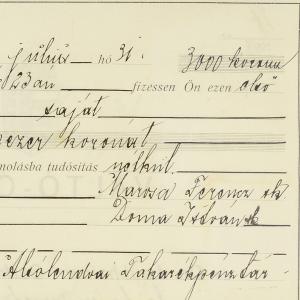 július hó 31. 3000 korona
923 án fizessen Ön ezen első
saját
ezer koronát
molásba tudósítás nélkül.
Marosa Ferencz
Doma István
Alsólendvai Takarékpénztár